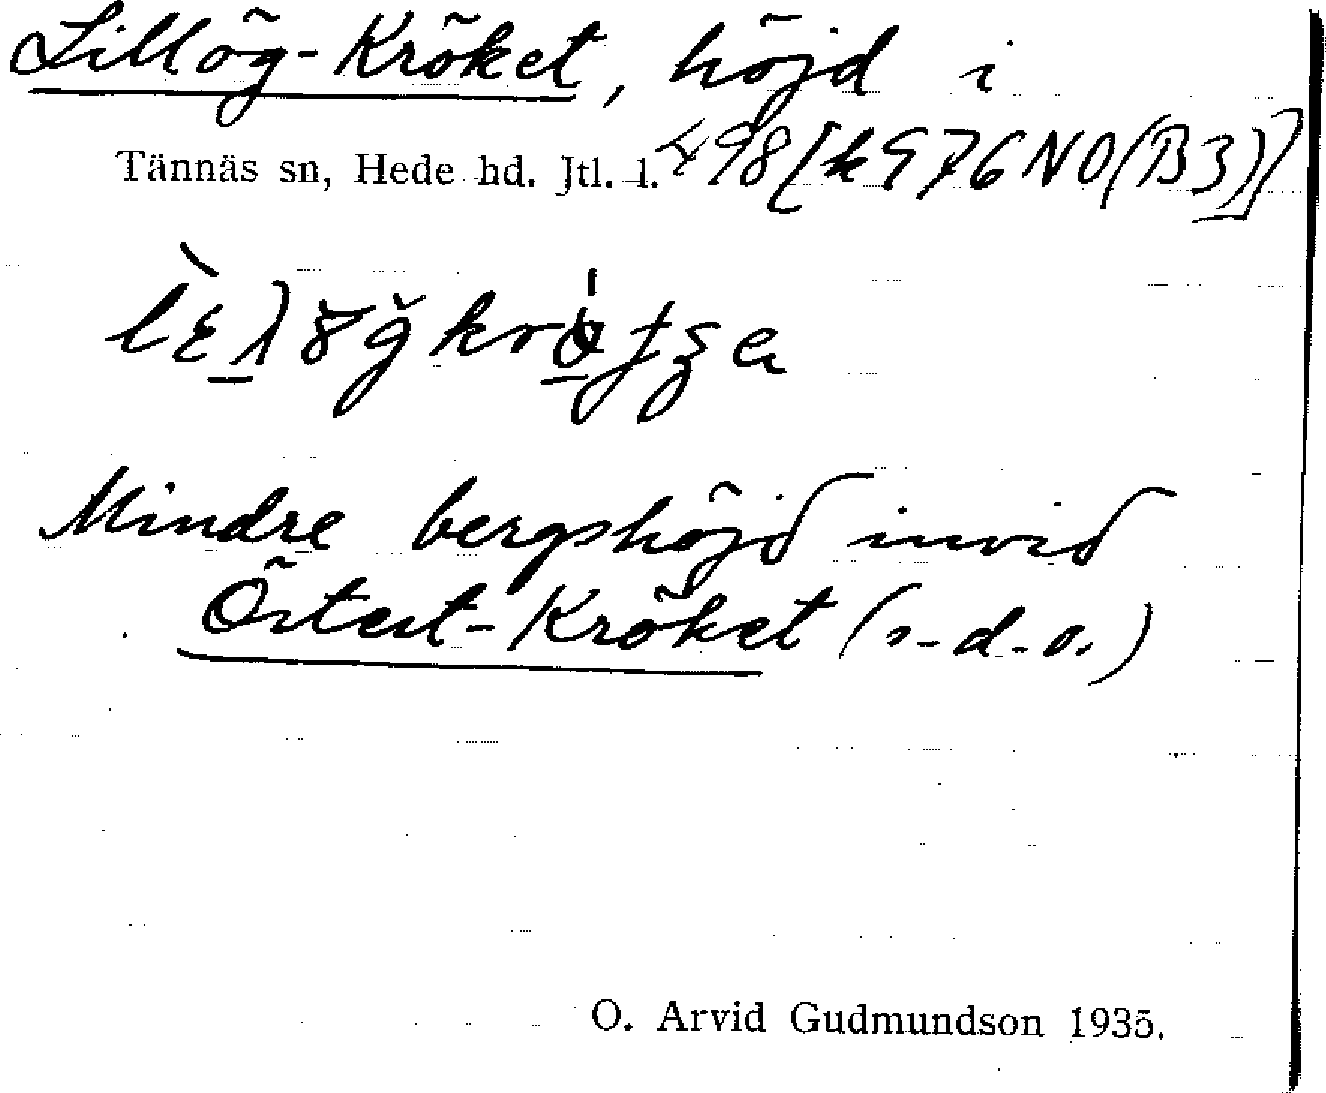 Lillög-Kröket, höjd i
Tännäs sn, Hede hd. Jtl. l. 498[k976NO(B3)]
Mindre bergshöjd invid
Östest-Kröket (s.d.o.)
O. Arvid Gudmundson 1935.